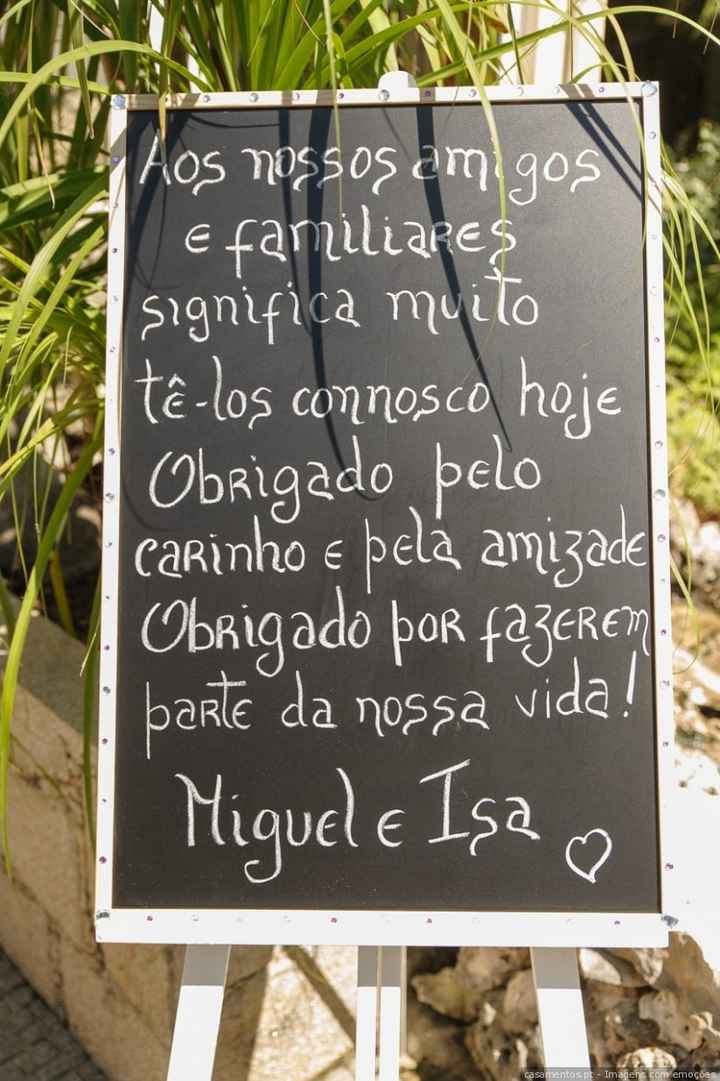 Aos nossos amigos
e familiares
significa muito
tê-los connosco hoje
Obrigado pelo
carinho e pela amizade
Obrigado por fazerem
parte da nossa vida!
Miguel e Isa
casamentos.pt - Imagens com emoções